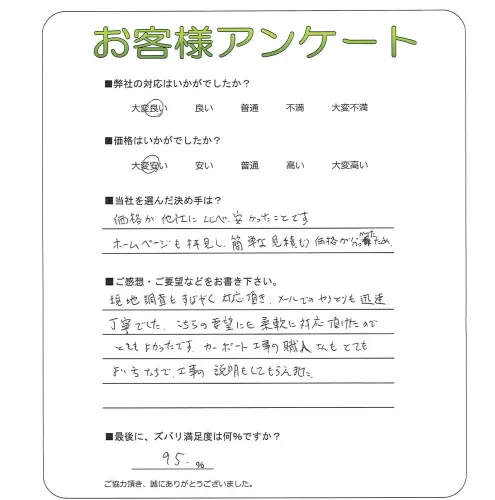 お客様アンケート
■弊社の対応はいかがでしたか？
大変良い 良い 普通 不満 大変不満
■価格はいかがでしたか？
大変安い 安い 普通 高い 大変高い
■当社を選んだ決め手は？
価格が他社に比べ、安かったことです
ホームページも拝見し、簡単な見積もり価格が分かったため
■ご感想・ご要望などをお書き下さい。
現地調査もすばやく対応頂き、メールでのやりとりも迅速
丁寧でした。こちらの要望にも柔軟に対応頂けたので
とてもよかったです。カーポート工事の職人さんもとても
よい方たちで、工事の説明もしてもらえた。
■最後に、ズバリ満足度は何%ですか？
95. %
ご協力頂き、誠にありがとうございました。